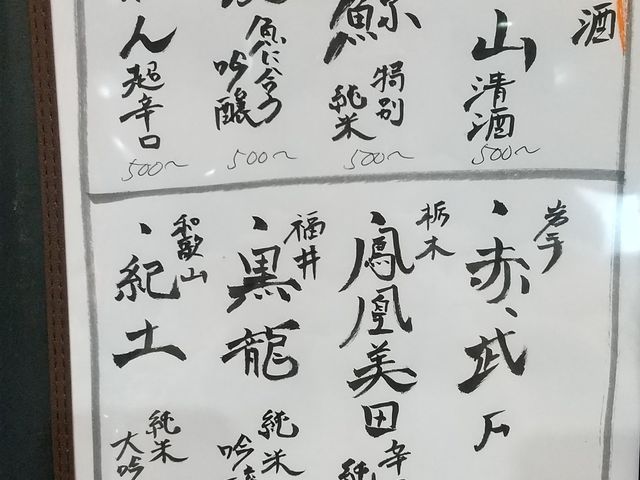 酒
山 清酒
500〜
鮨 特別
純米
500〜
魚に合う
吟醸
500〜
ん 超辛口
500〜
岩手
・赤武
栃木
・鳳凰美田
辛
純
福井
・黒龍
純米
吟醸
和歌山
・紀土
純米
大吟